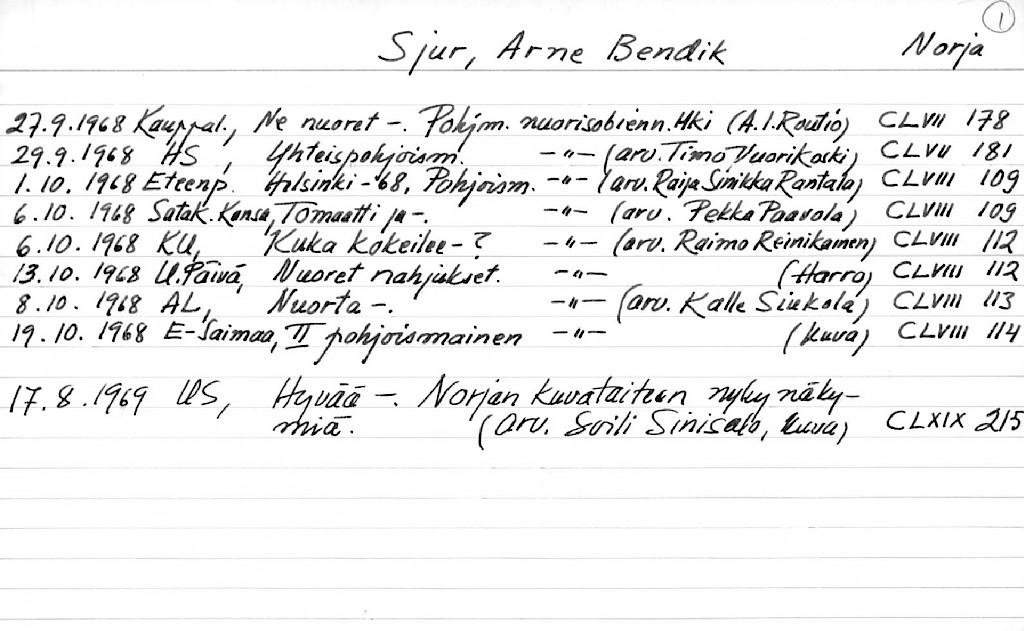 1
Sjur, Arne Bendik Norja
27.9.1968 Kauppal., Ne nuoret -. Pohjm. nuorisobienn. Hki (A.I.Routio) CLVII 178
29.9.1968 HS, Yhteispohjoism. -"- (arv. Timo Vuorikoski) CLVII 181
1.10.1968 Eteenp. Helsinki -68, Pohjoism. -"- (arv. Raija Sinikka Rantala) CLVIII 109
6.10.1968 Satak. Kansa, Tomaatti ja -. -"- (arv. Pekka Paavola) CLVIII 109
6.10.1968 KU, Kuka kokeilee -? -"- (arv. Raimo Reinikainen) CLVIII 112
13.10.1968 U.Päivä, Nuoret nahjukset. -"- (Harro) CLVIII 112
8.10.1968 AL, Nuorta -. -"- (arv. Kalle Siukola) CLVIII 113
19.10.1968 E-Saimaa, II pohjoismainen -"- (kuva) CLVIII 114
17.8.1969 US, Hyvää -. Norjan kuvataiteen nykynäky-
miä. (Arv. Soili Sinisalo, kuva) CLXIX 215